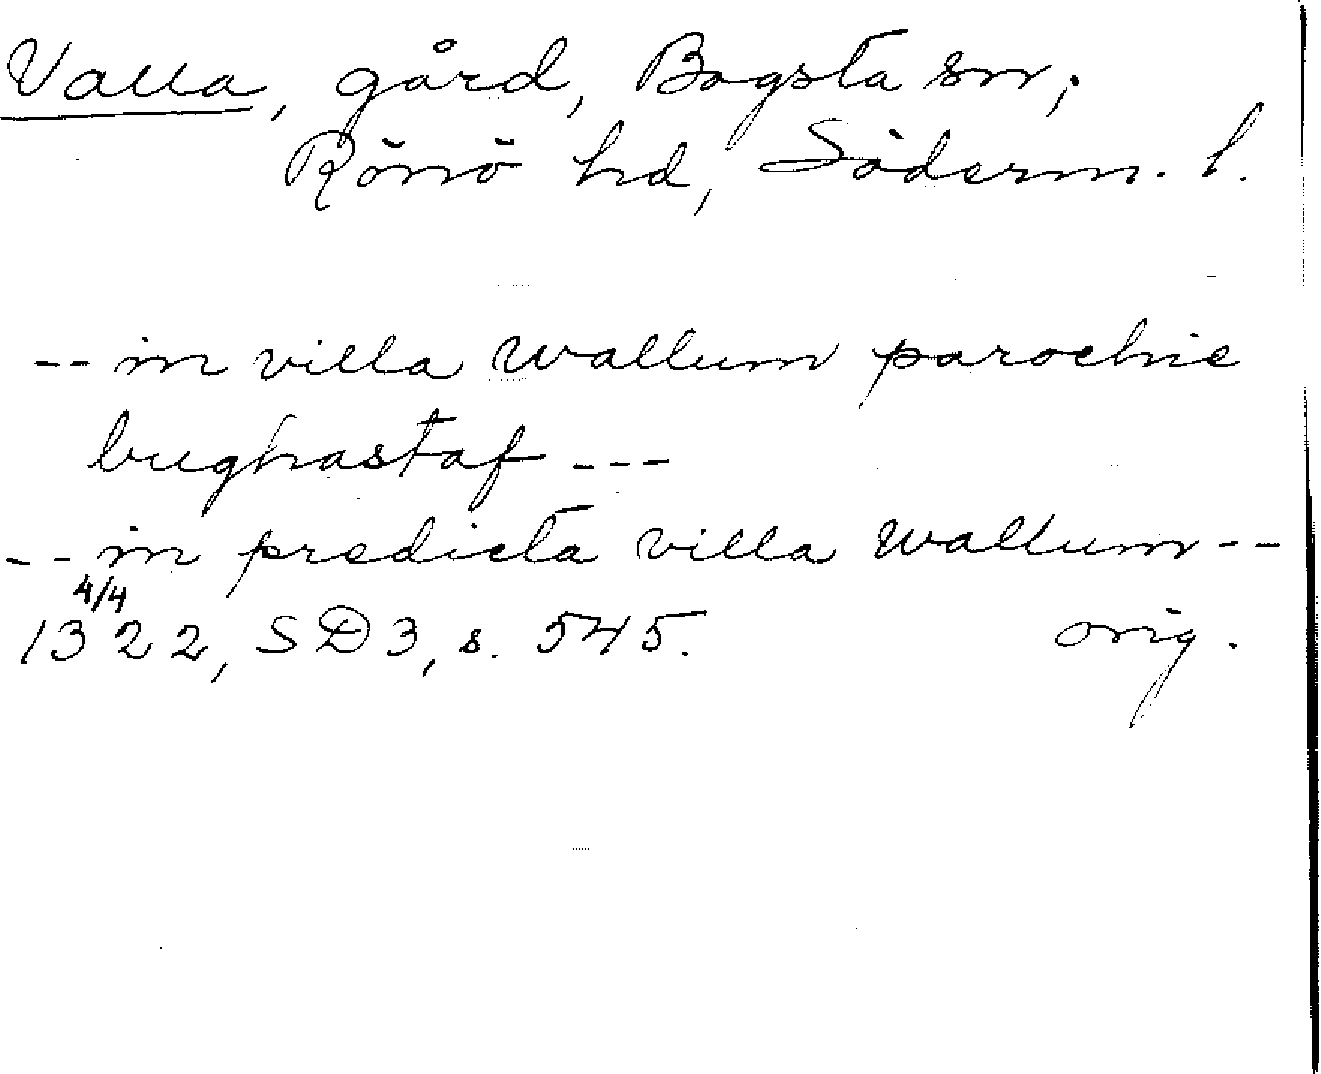 Valla, gård, Bogsta sn,
Rönö hd, Söderm. l.
-- in villa wallum parochie
bughastaf ---
-- in predicta villa wallum --
4/4
1322, SD3, s. 545. orig.